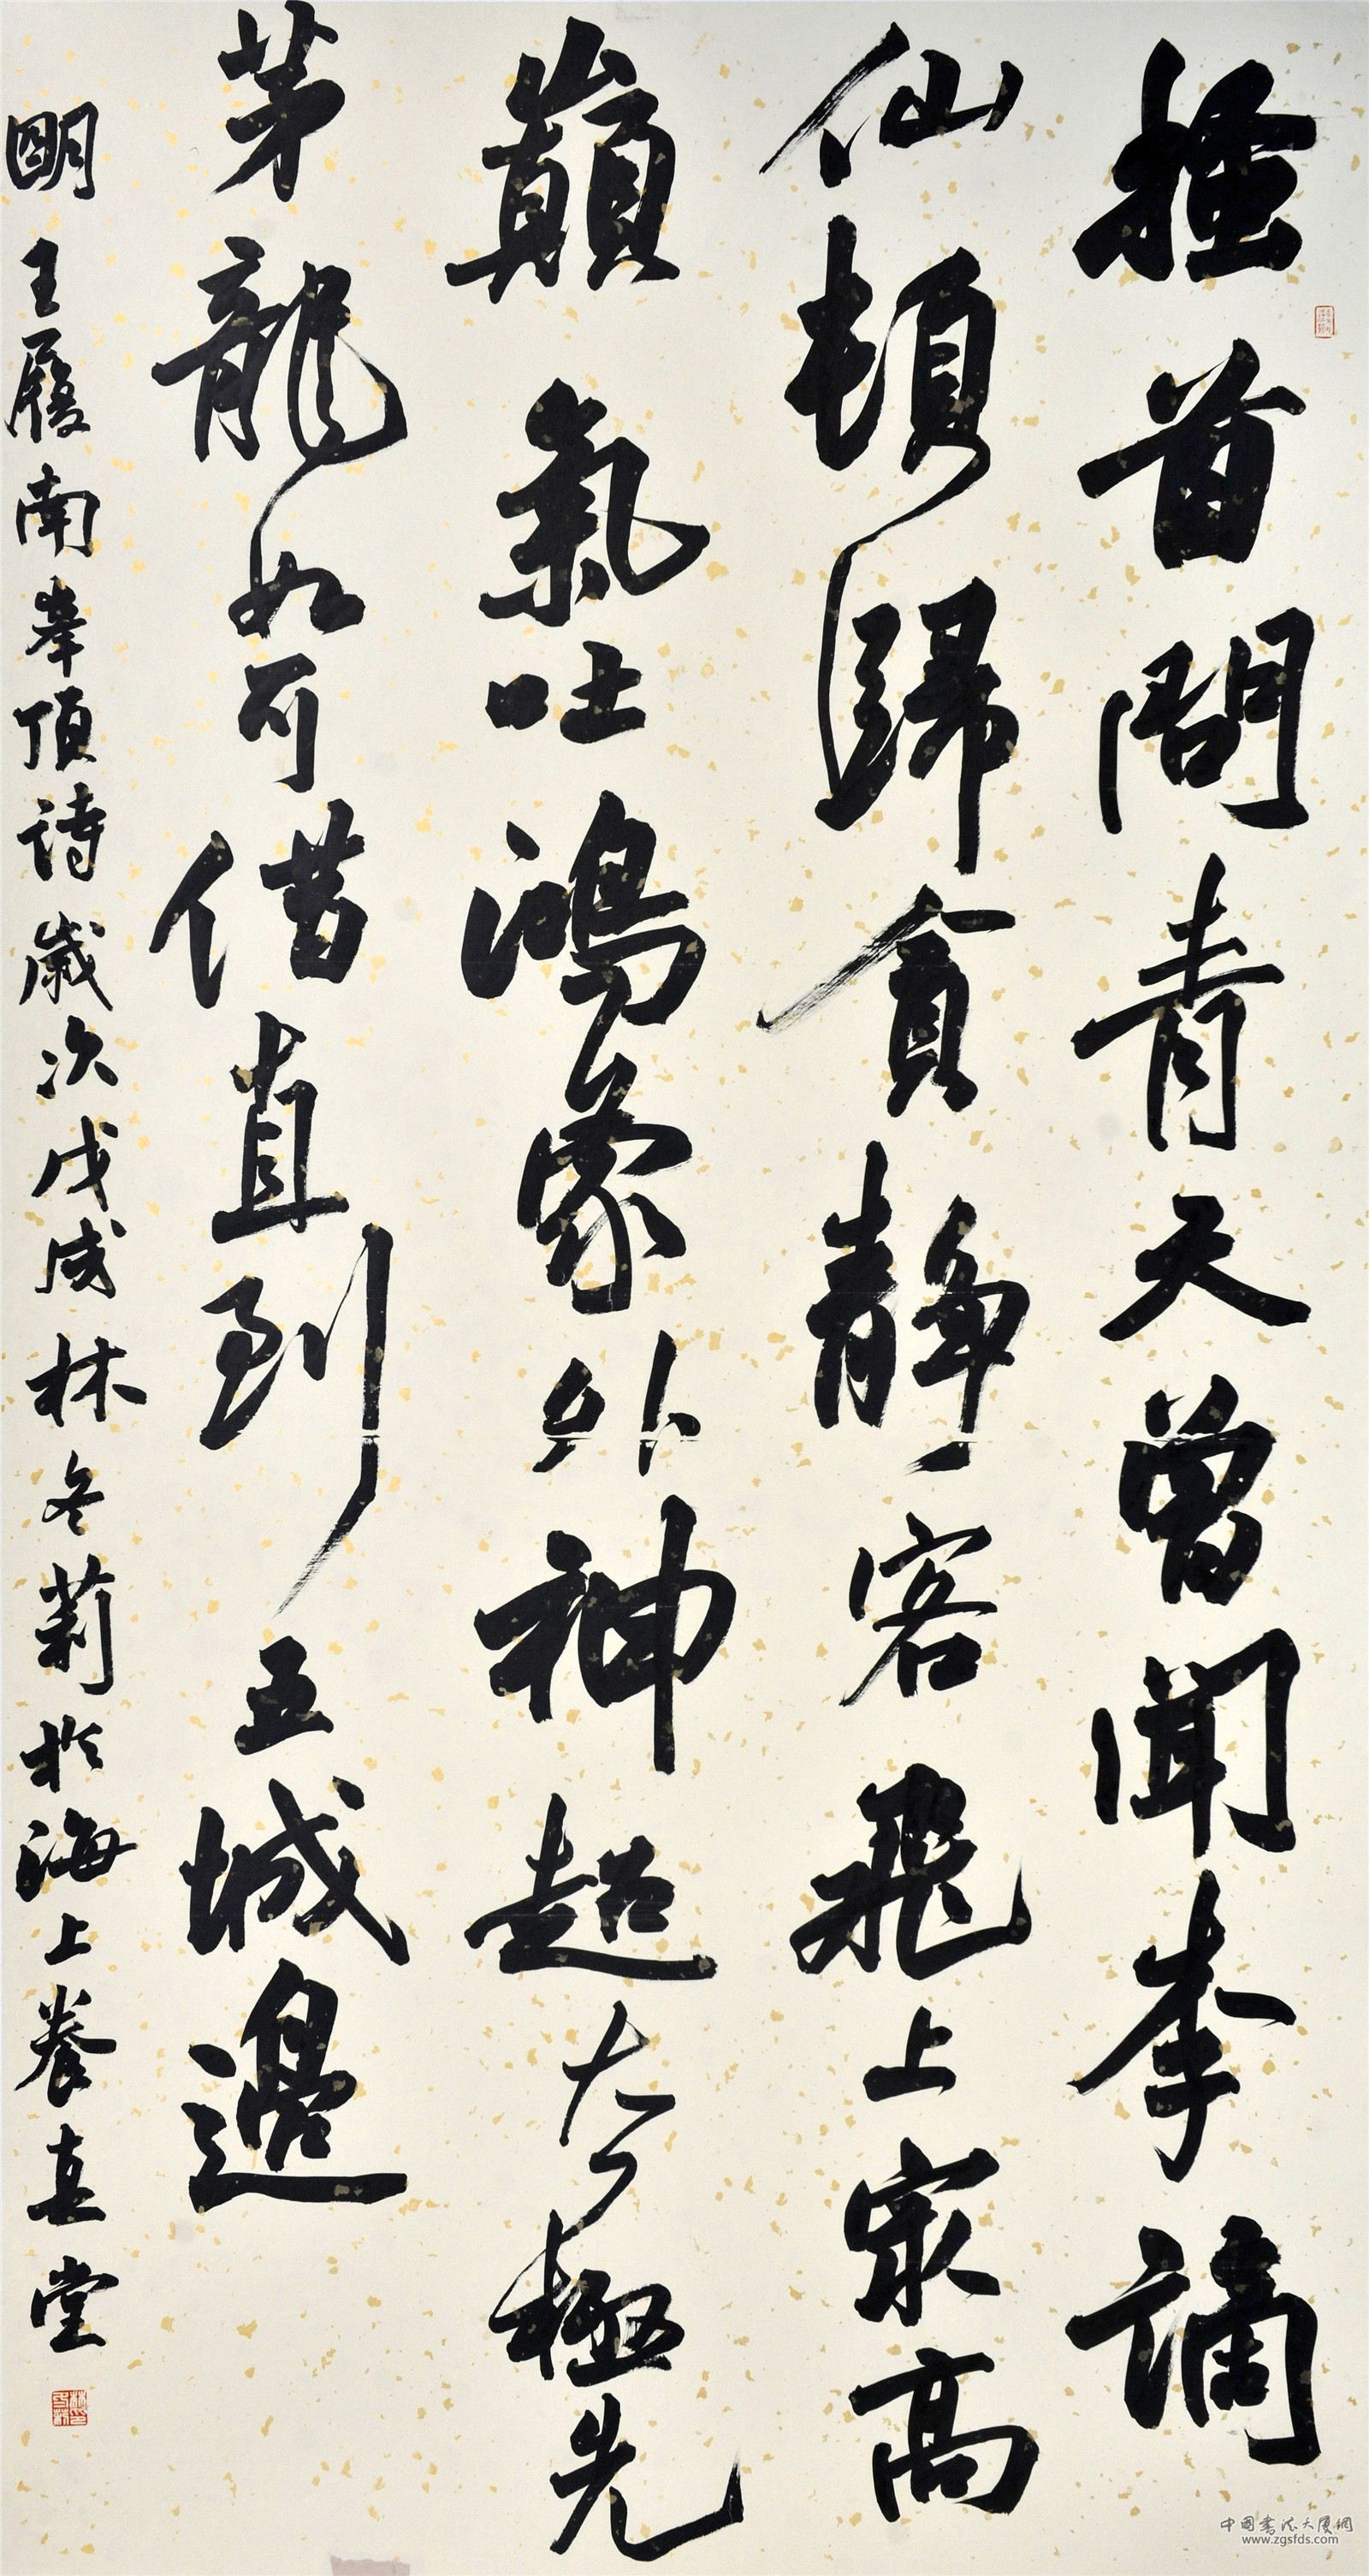 搔首問青天曾聞李謫
仙頓歸貪靜客飛上最高
巔氣吐鴻蒙外神超太極先
茅龍如可借直到五城邊
明王履南峯頂詩歲次戊戌林冬莉於海上養真堂
中國書法大廈網
www.zgsfds.com